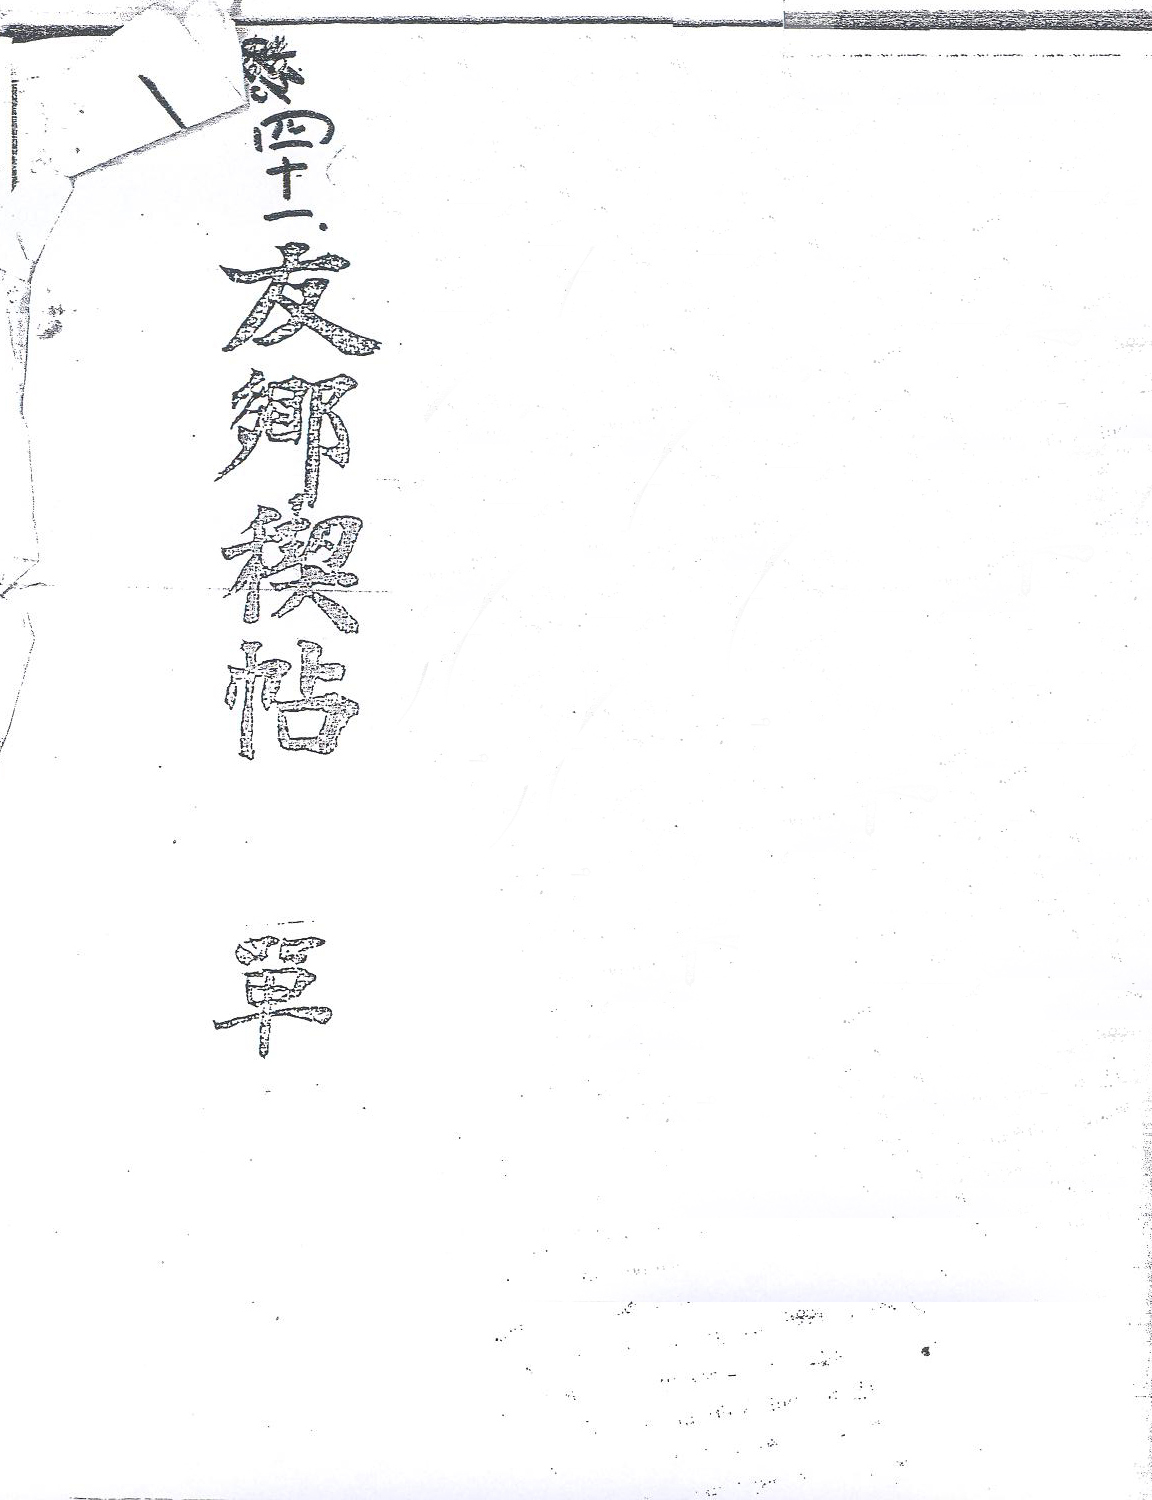 四十一.
友鄉稧帖
單